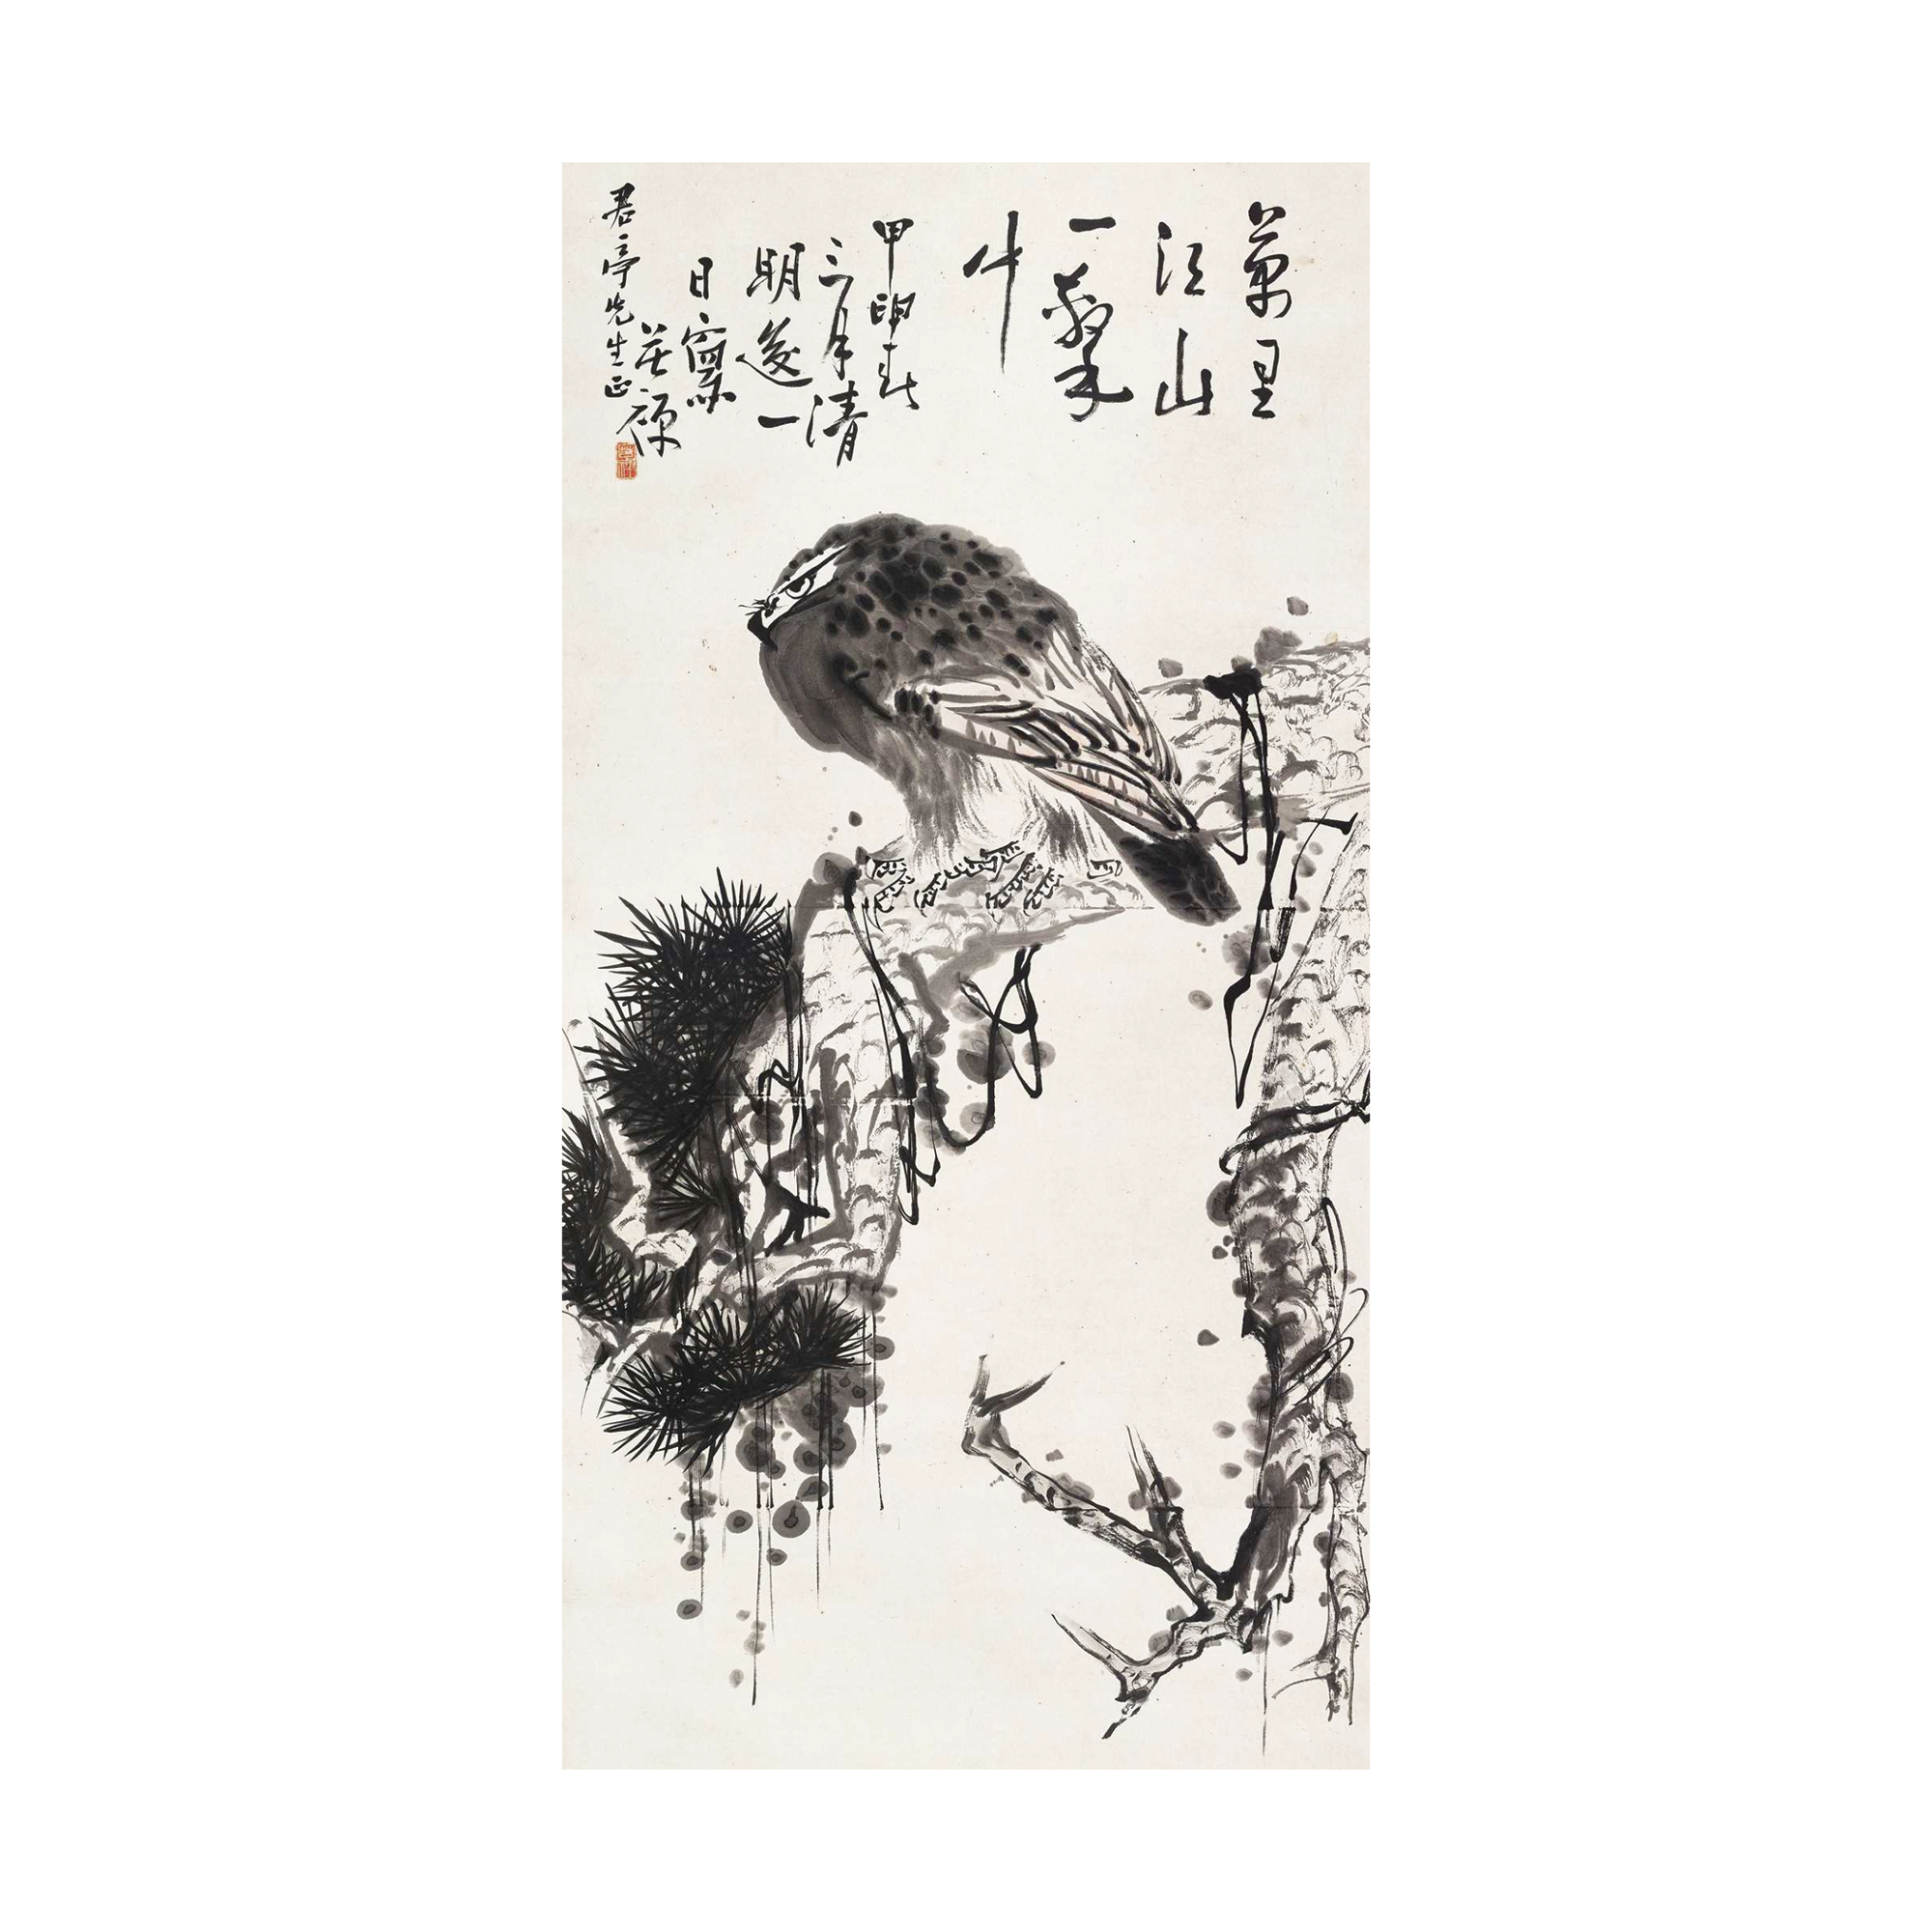 萬里
江山
一擊
中
甲申春
三月清
明後一
日寫
君亭先生正